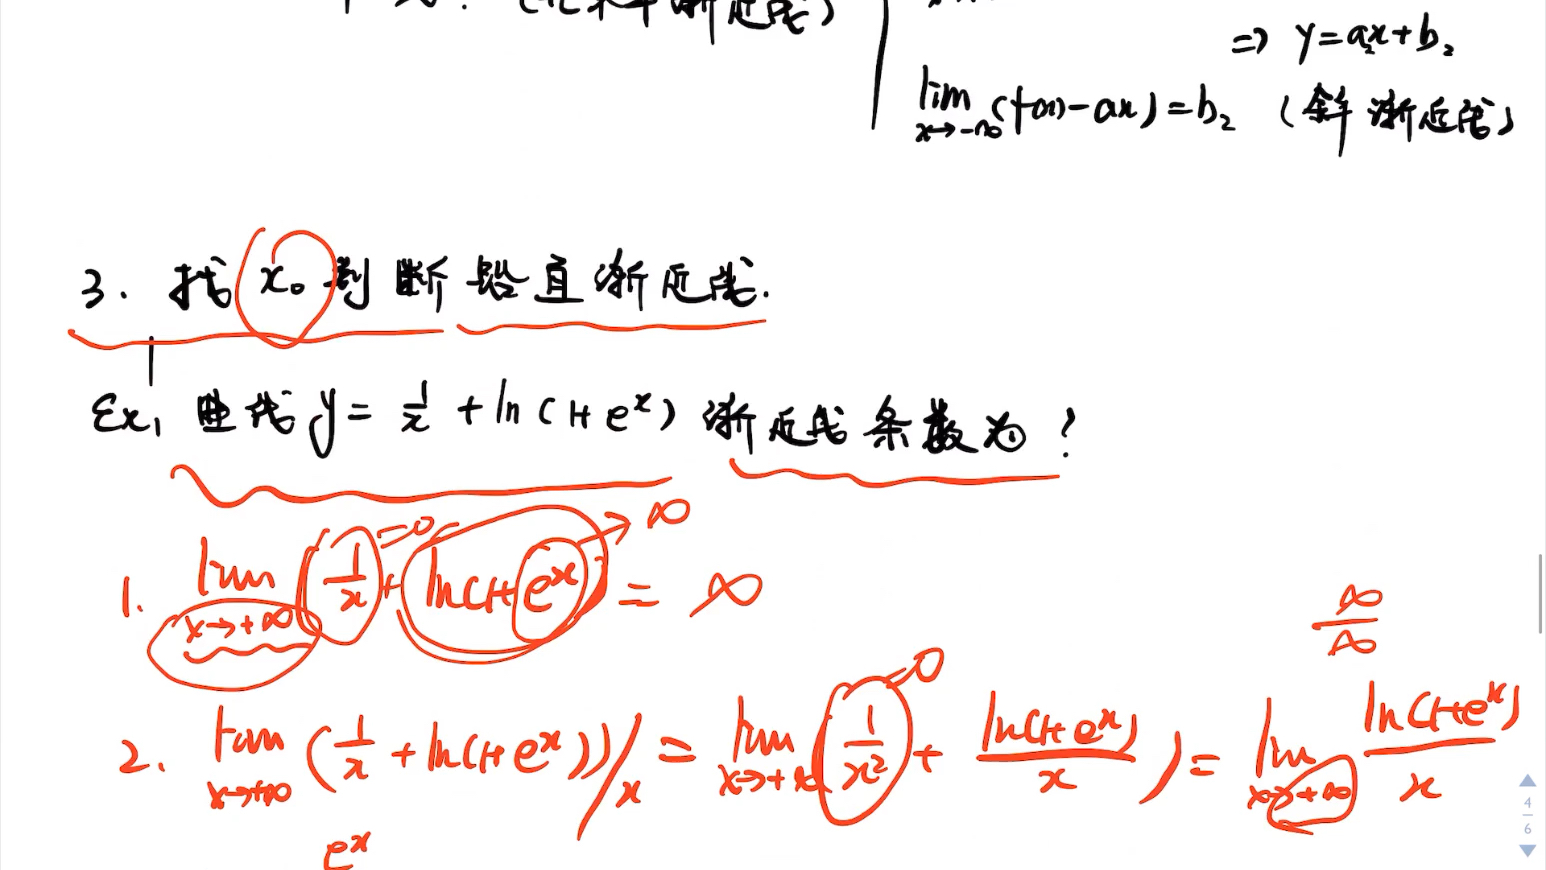 (非水平渐近线)
⇒ y=a₂x+b₂
lim x→-∞ (f(x)-ax)=b₂ (斜渐近线)
3. 找x₀判断铅直渐近线.
Ex, 曲线y= 1/x +ln(1+e^x) 渐近线条数为?
=0 → ∞
1. lim x→+∞ (1/x + ln(1+e^x)) = ∞
∞/∞
=0
2. lim x→+∞ (1/x + ln(1+e^x))/x = lim x→+∞ (1/x² + ln(1+e^x)/x) = lim x→+∞ ln(1+e^x)/x
e^x
4
6